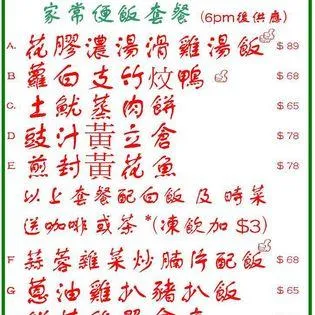 家常便飯套餐 (6pm後供應)
A. 花膠濃湯滑雞湯飯 $89
B 蘿白支竹炆鴨 $68
C. 土魷蒸肉餅 $65
D 豉汁黃立倉 $78
E 煎封黃花魚 $78
以上套餐配白飯及時菜
送咖啡或茶*(凍飲加 $3)
F 蒜蓉雞菜炒腩片配飯 $68
G 蔥油雞扒豬扒飯 $65